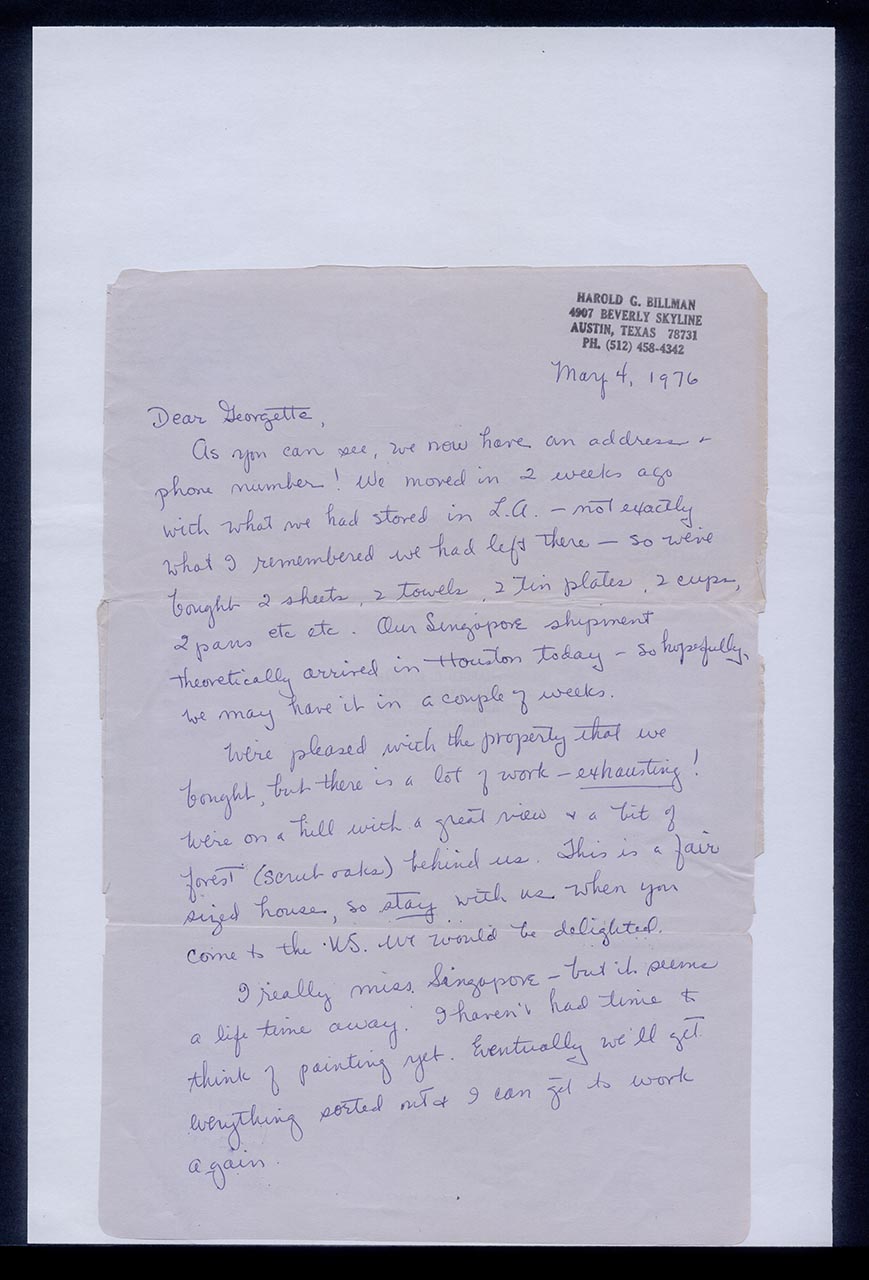 HAROLD G. BILLMAN
4907 BEVERLY SKYLINE
AUSTIN, TEXAS 78731
PH. (512) 458-4342
May 4, 1976
Dear Georgette,
As you can see, we now have an address +
phone number! We moved in 2 weeks ago
with what we had stored in L.A. – not exactly
what I remembered we had left there – so we've
bought 2 sheets, 2 towels, 2 tin plates, 2 cups,
2 pans etc etc. Our Singapore shipment
theoretically arrived in Houston today – so hopefully,
we may have it in a couple of weeks.
We're pleased with the property that we
bought, but there is a lot of work – exhausting!
We're on a hill with a great view & a bit of
forest (scrub oaks) behind us. This is a fair
sized house, so stay with us when you
come to the US. We would be delighted.
I really miss Singapore – but it seems
a life time away. I haven't had time to
think of painting yet. Eventually we'll get
everything sorted out & I can get to work
again.